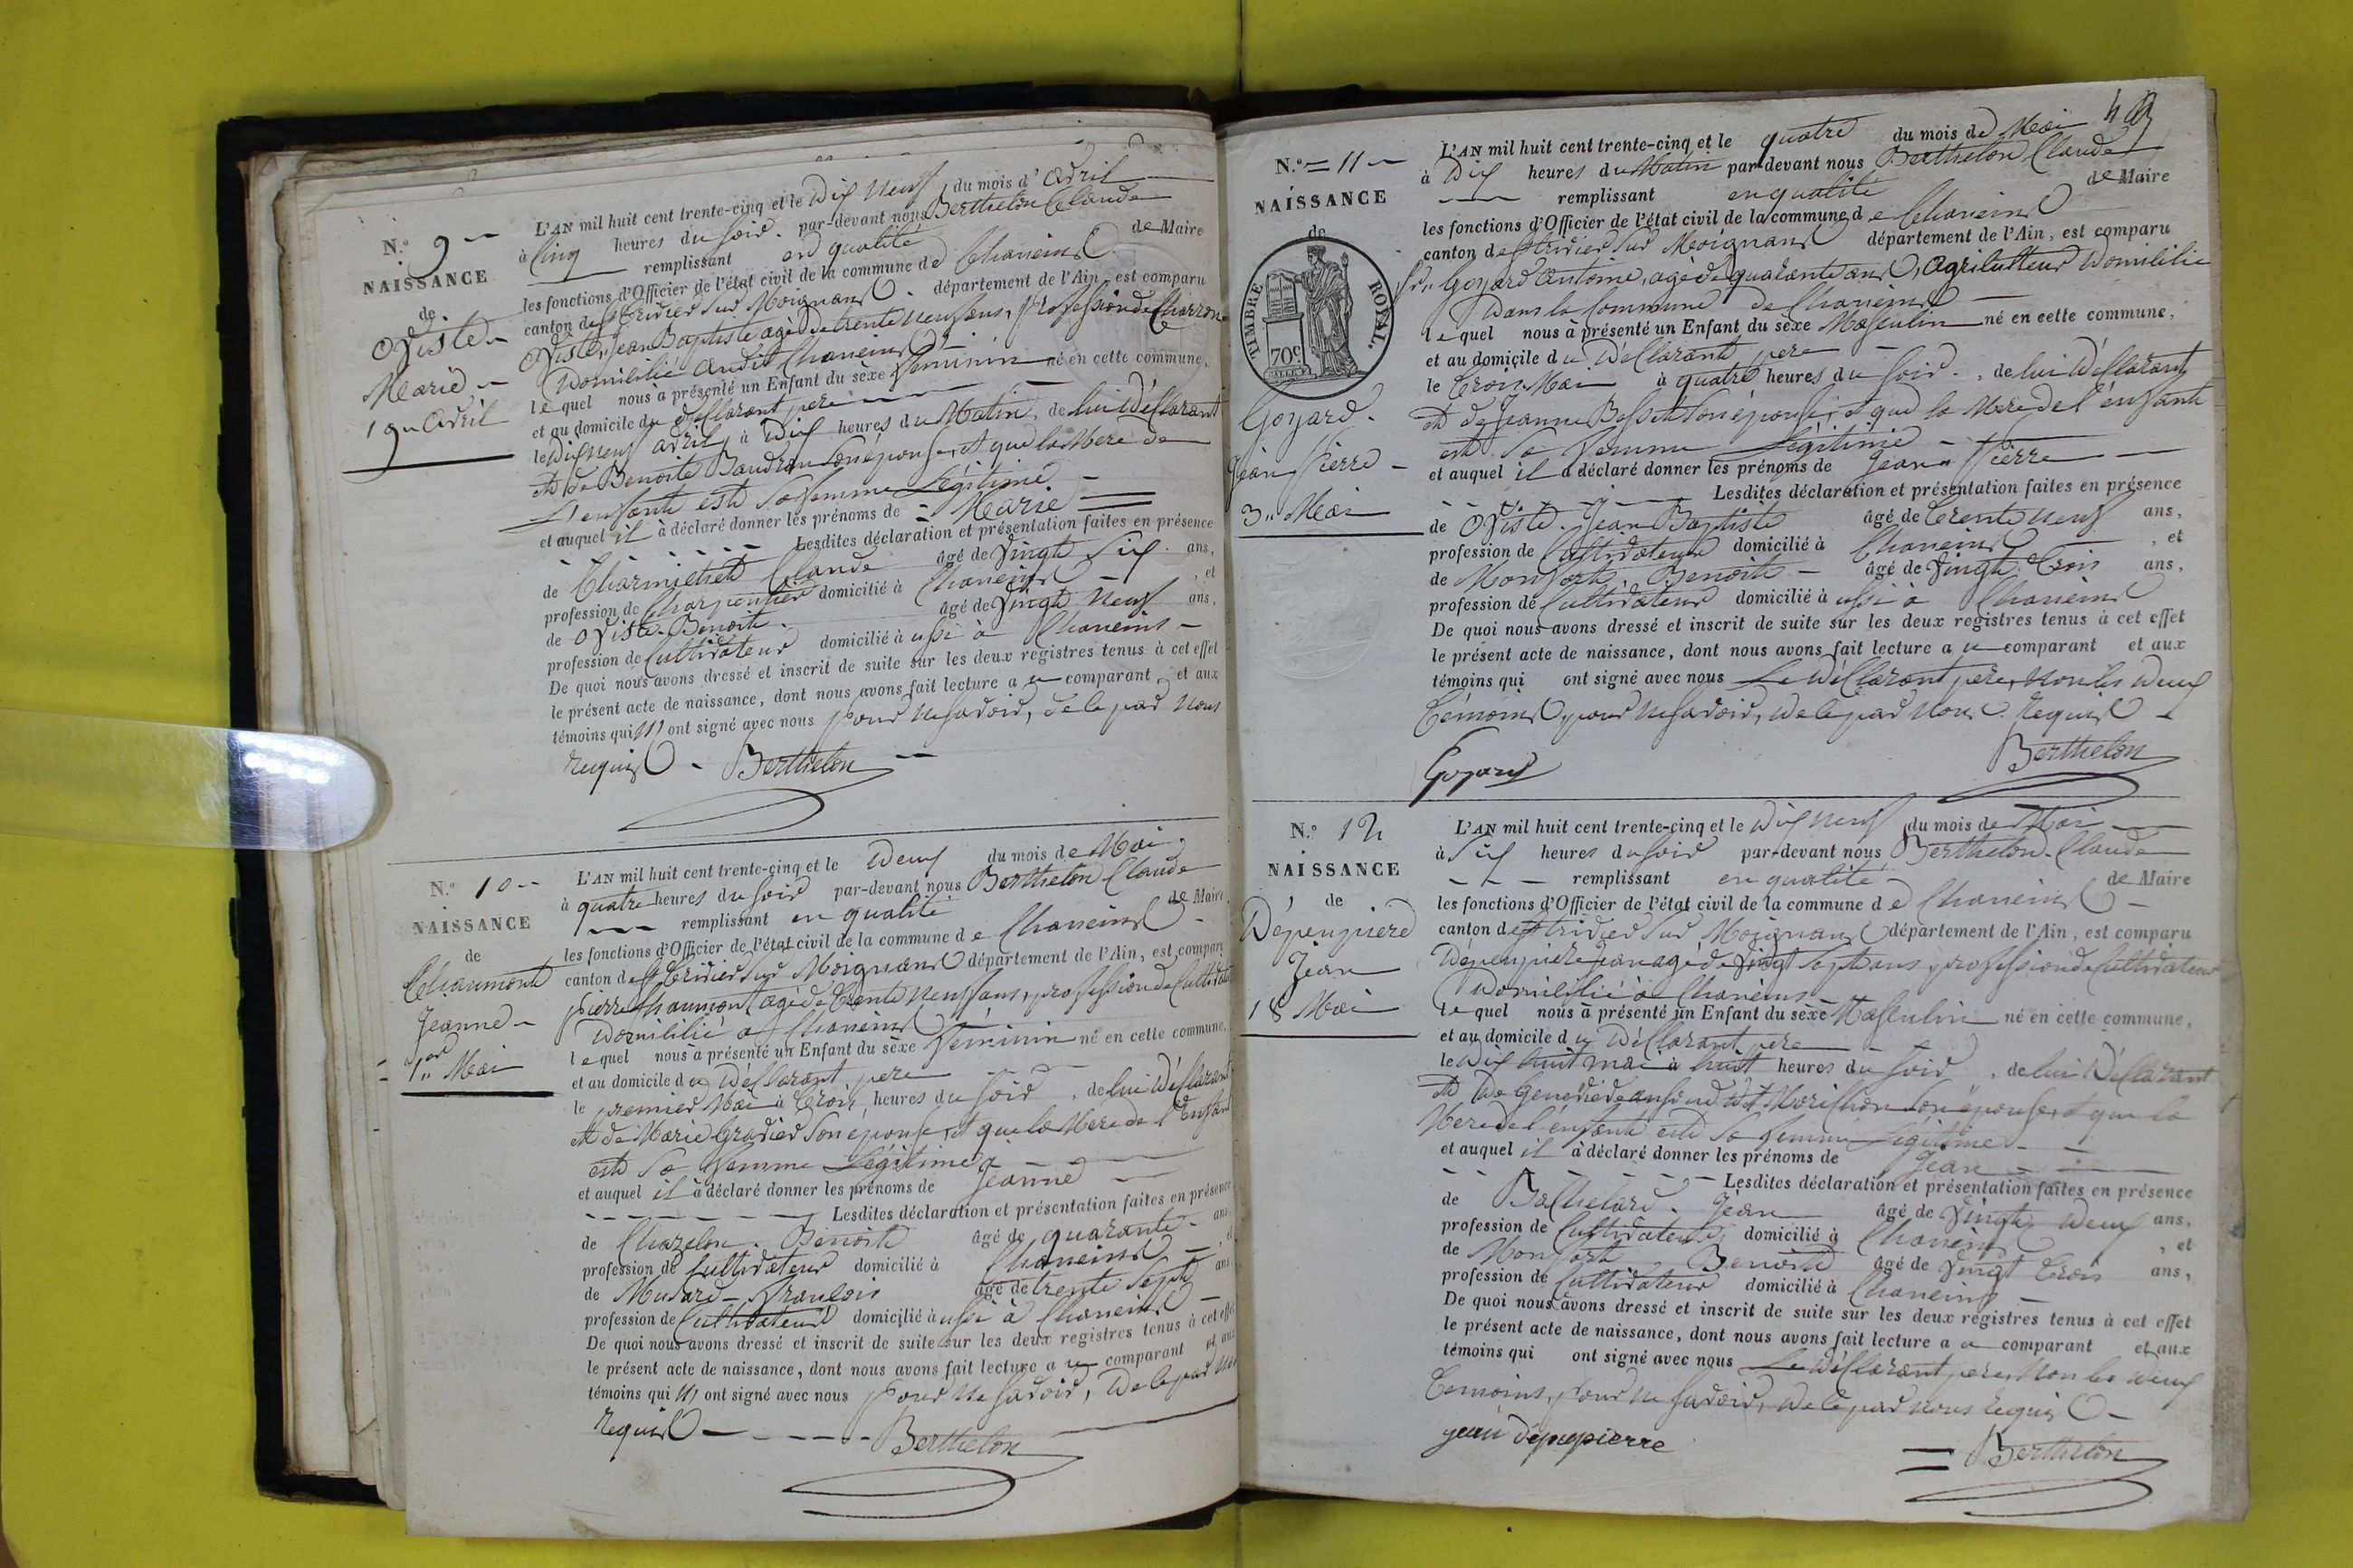 N.º 9
NAISSANCE
de
Viste
Marie
19 Avril
L'AN mil huit cent trente-cinq et le Dix neuf du mois d'Avril
à Cinq heures du Soir par-devant nous Berthelon Claude
remplissant en qualité de Maire
les fonctions d'Officier de l'état civil de la commune de Chaneins
canton de St Trivier Sur Moignans département de l'Ain, est comparu
Viste, Jean Baptiste agé de trente neuf ans, Profession de Charron
Domicilié audit Chaneins
lequel nous a présenté un Enfant du sèxe Feminin né en cette commune,
et au domicile du déclarant pere
le Dix neuf avril à Dix heures du Matin, de lui Déclarant
et de Benoite Baudran Son épouse, et que la Mere de
L'enfant est Sa femme Légitime
et auquel il a déclaré donner les prénoms de Marie
Lesdites déclaration et présentation faites en présence
de Charmetet Claude âgé de Vingt Six ans,
profession de Charpentier domicilié à Chaneins, et
de Viste Benoit âgé de Vingt Neuf ans,
profession de Cultivateur domicilié à ussi à Chaneins
De quoi nous avons dressé et inscrit de suite sur les deux registres tenus à cet effet
le présent acte de naissance, dont nous avons fait lecture au comparant et aux
témoins qui n'ont signé avec nous pour ne Savoir, de le par nous
Requis Berthelon
N.º 10
NAISSANCE
de
Chaumont
Jeanne
1er Mai
L'AN mil huit cent trente-cinq et le Deux du mois de Mai
à quatre heures du Soir par-devant nous Berthelon Claude
remplissant en qualité de Maire
les fonctions d'Officier de l'état civil de la commune de Chaneins
canton de St Trivier Sur Moignans département de l'Ain, est comparu
Pierre Chaumont agé de Trente Neuf ans, profession de Cultivateur
Domicilié à Chaneins
lequel nous a présenté un Enfant du sèxe Feminin né en cette commune,
et au domicile du Déclarant pere
le premier Mai à Trois heures du Soir, de lui Déclarant
et de Marie Gravier Son épouse, et que la Mere de l'Enfant
est Sa Femme Légitime
et auquel il a déclaré donner les prénoms de Jeanne
Lesdites déclaration et présentation faites en présence
de Chazelon Benoit âgé de quarante ans
profession de Cultivateur domicilié à Chaneins, et
de Musard François âgé de trente Sept ans
profession de Cultivateur domicilié à ussi à Chaneins
De quoi nous avons dressé et inscrit de suite sur les deux registres tenus à cet effet
le présent acte de naissance, dont nous avons fait lecture au comparant et aux
témoins qui n'ont signé avec nous pour ne Savoir, De le par nous
Requis Berthelon
N.º 11
NAISSANCE
de
TIMBRE ROYAL.
70 c.
Goyard
Jean Pierre
3 Mai
L'AN mil huit cent trente-cinq et le quatre du mois de Mai
à Dix heures du Matin par-devant nous Berthelon Claude
remplissant en qualité de Maire
les fonctions d'Officier de l'état civil de la commune de Chaneins
canton de St Trivier Sur Moignans département de l'Ain, est comparu
Sr Goyard Antoine, agé de quarante ans, Agriculteur Domicilié
Dans la Commune de Chaneins
lequel nous à présenté un Enfant du sèxe Masculin né en cette commune,
et au domicile du Déclarant pere
le Trois Mai à quatre heures du Soir, de lui Déclarant
et de Jeanne Bosset Son épouse, et que la Mere de l'enfant
est Sa Femme Légitime
et auquel il a déclaré donner les prénoms de Jean Pierre
Lesdites déclaration et présentation faites en présence
de Viste Jean Baptiste âgé de Trente Neuf ans,
profession de Cultivateur domicilié à Chaneins, et
de Monfort Benoit âgé de Vingt Trois ans,
profession de Cultivateur domicilié à ussi à Chaneins
De quoi nous avons dressé et inscrit de suite sur les deux registres tenus à cet effet
le présent acte de naissance, dont nous avons fait lecture au comparant et aux
témoins qui ont signé avec nous Le Déclarant pere, Non les Deux
Témoins, pour ne Savoir, De le par nous Requis
Berthelon
Goyard
N.º 12
NAISSANCE
de
Dépeupiere
Jean
18 Mai
L'AN mil huit cent trente-cinq et le Dix neuf du mois de Mai
à Six heures du Soir par-devant nous Berthelon Claude
remplissant en qualité de Maire
les fonctions d'Officier de l'état civil de la commune de Chaneins
canton de St Trivier Sur Moignans département de l'Ain, est comparu
Dépeupiere Jean agé de Vingt Sept ans, profession de Cultivateur
Domicilié à Chaneins
lequel nous à présenté un Enfant du sèxe Masculin né en cette commune,
et au domicile du Déclarant pere
le Dix huit mai à huit heures du Soir, de lui Déclarant
et De Genevieve Morichon Son épouse, et que la
Mere de l'enfant est Sa Femme Légitime
et auquel il à déclaré donner les prénoms de Jean
Lesdites déclaration et présentation faites en présence
de Bachelard Jean âgé de Vingt Deux ans,
profession de Cultivateur domicilié à Chaneins, et
de Monfort Benoit âgé de Vingt Trois ans,
profession de Cultivateur domicilié à Chaneins
De quoi nous avons dressé et inscrit de suite sur les deux registres tenus à cet effet
le présent acte de naissance, dont nous avons fait lecture au comparant et aux
témoins qui ont signé avec nous Le Déclarant pere, Non les Deux
Temoins, Pour ne Savoir, De le par nous Requis
jean dépupierre
Berthelon